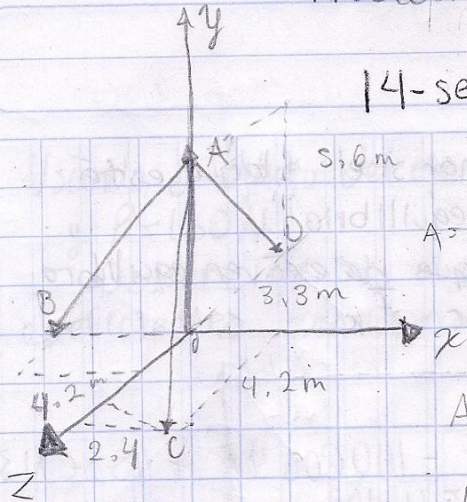 y
14-se
A
5,6m
A=
D
3,3m
B
x
4.2m
4.2m
A
2.4
C
Z